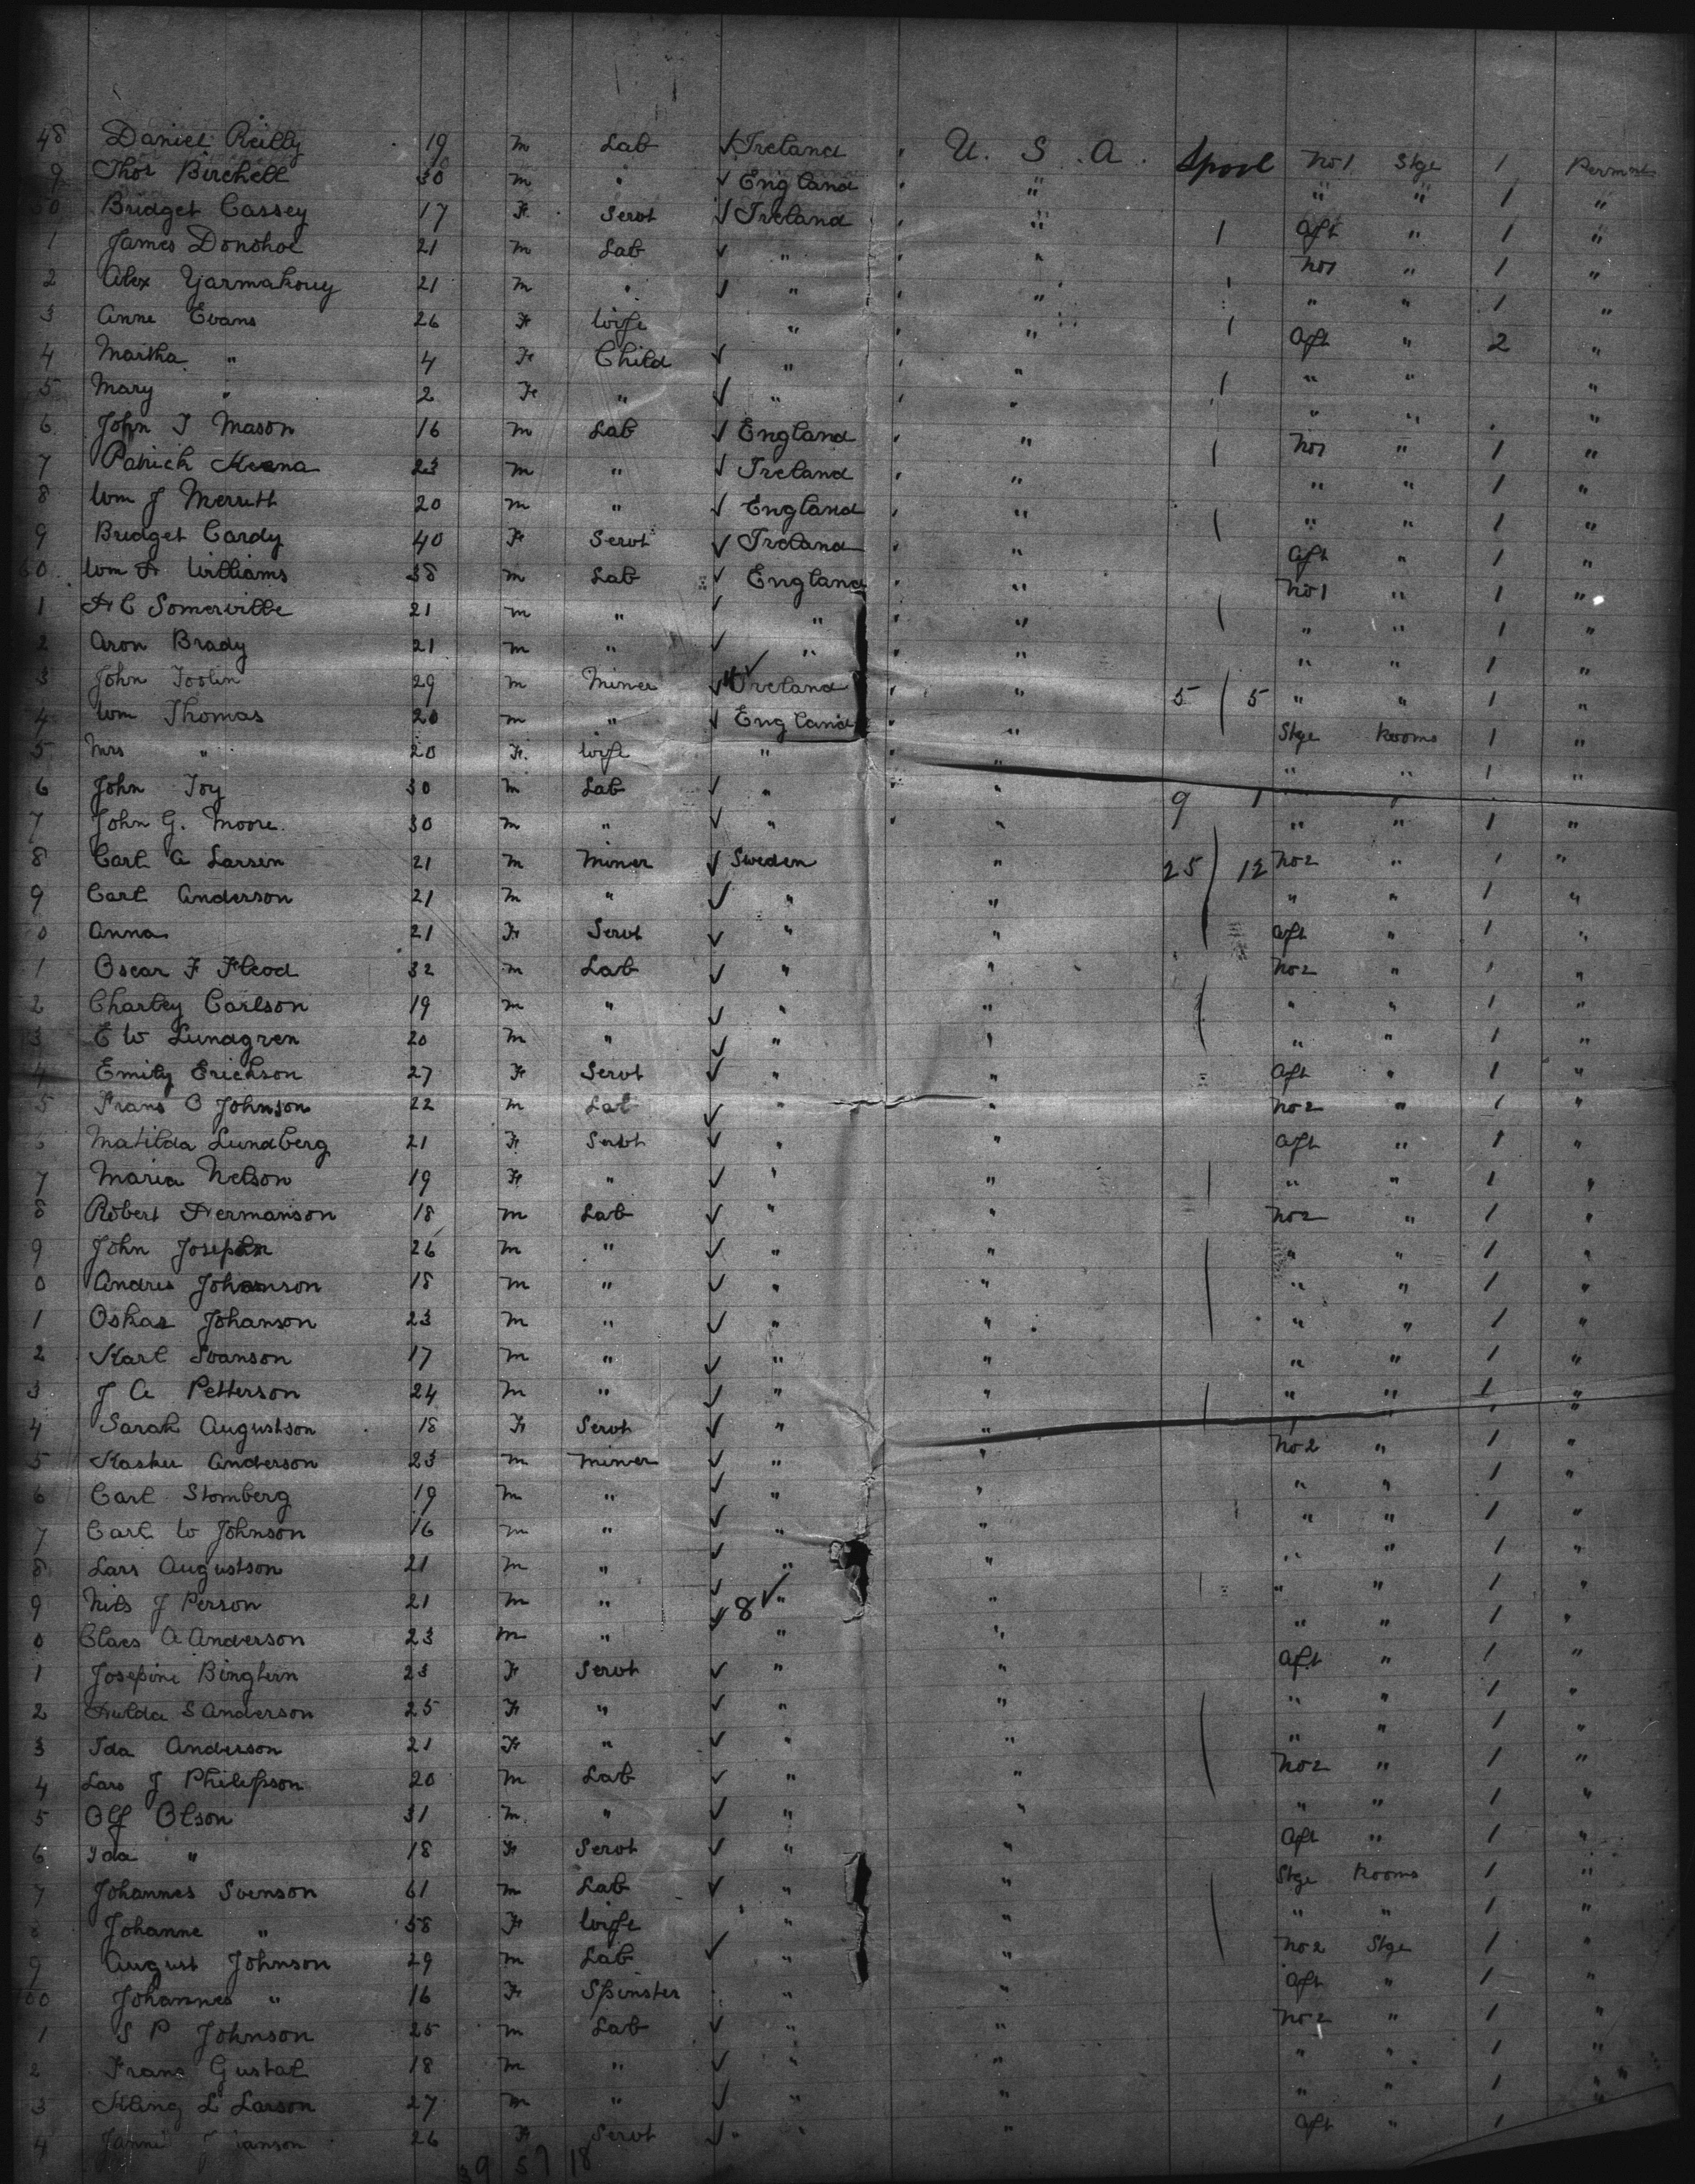 48 Daniel Reilly 19 m Lab ✓ Ireland " U. S. A. Spool No 1 Stge 1 Permnt
9 Thos Birchell 30 m " ✓ England " " " " 1 "
50 Bridget Cassey 17 F Servt ✓ Ireland " " Aft " 1 "
1 James Donohoe 21 m Lab ✓ " " " No1 " 1 "
2 Alex 21 m " ✓ " " " " " 1 "
3 Anne Evans 26 F Wife " " " Aft " 2 "
4 Martha " 4 F Child ✓ " " " " " "
5 Mary " 2 F " ✓ " " " " " "
6 John T Mason 16 m Lab ✓ England " " No1 " 1 "
7 Patrick 23 m " ✓ Ireland " " " 1 "
8 Wm J Merritt 20 m " ✓ England " " " " 1 "
9 Bridget Cardy 40 F Servt ✓ Ireland " " Aft " 1 "
60 Wm H Williams 38 m Lab ✓ England " " No1 " 1 "
1 H C Somerville 21 m " ✓ " " " " " 1 "
2 Aron Brady 21 m " ✓ " " " " " 1 "
3 John 29 m Miner ✓ Ireland " " 5 5 " " 1 "
4 Wm Thomas 20 m " ✓ England " " Stge Rooms 1 "
5 Mrs " 20 F Wife " " " " " 1 "
6 John Toy 30 m Lab ✓ " " " 9 1 " "
7 John G. Moore 30 m " ✓ " " " " " 1 "
8 Carl A Larsen 21 m Miner ✓ Sweden " 25 12 No2 " 1 "
9 Carl Anderson 21 m " ✓ " " " " 1 "
0 Anna 21 F Servt ✓ " " Aft " 1 "
1 Oscar F 32 m Lab ✓ " " No2 " 1 "
2 Charley Carlson 19 m " ✓ " " " " 1 "
3 E W Lundgren 20 m " ✓ " " " " 1 "
4 Emily Erickson 27 F Servt ✓ " " Aft " 1 "
5 Frans O Johnson 22 m Lab ✓ " " No2 " 1 "
6 Matilda Lundberg 21 F Servt ✓ " " Aft " 1 "
7 Maria Nelson 19 F " ✓ " " " " 1 "
8 Robert Hermanson 18 m Lab ✓ " " No2 " 1 "
9 John 26 m " ✓ " " " " 1 "
0 Andres Johanson 18 m " ✓ " " " " 1 "
1 Oskar Johanson 23 m " ✓ " " " " 1 "
2 Karl Svanson 17 m " ✓ " " " " 1 "
3 J A Petterson 24 m " ✓ " " " " 1 "
4 Sarah Augustson 18 F Servt ✓ " " " " " "
5 Anderson 23 m Miner ✓ " " No2 " 1 "
6 Carl Stomberg 19 m " ✓ " " " " 1 "
7 Carl W Johnson 16 m " ✓ " " " " 1 "
8 Lars Augustson 21 m " ✓ " " " " 1 "
9 Nils J Person 21 m " ✓ 8 ✓ " " " " 1 "
0 Claes A Anderson 23 m " ✓ " " " " 1 "
1 Josefine 23 F Servt ✓ " " Aft " 1 "
2 Hulda S Anderson 25 F " ✓ " " " " 1 "
3 Ida Anderson 21 F " ✓ " " " " 1 "
4 Lars J Philipson 20 m Lab ✓ " " No2 " 1 "
5 Olf Olson 31 m " ✓ " " " " 1 "
6 Ida " 18 F Servt ✓ " " Aft " 1 "
7 Johannes Svenson 61 m Lab ✓ " " Stge Rooms 1 "
8 Johanne " 58 F Wife " " " " 1 "
9 August Johnson 29 m Lab ✓ " " No2 Stge 1 "
100 Johannes " 16 F Spinster " " Aft " 1 "
1 S P Johnson 25 m Lab ✓ " " No2 " 1 "
2 Frans 18 m " ✓ " " " " 1 "
3 L Larson 27 m " ✓ " " " " 1 "
4 26 F Servt ✓ " " Aft " 1
39 57 18